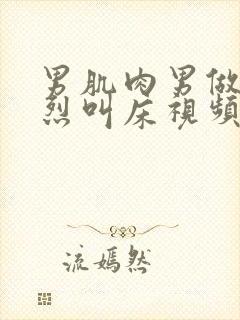 男肌肉男做
烈叫床視頻
流嫣然